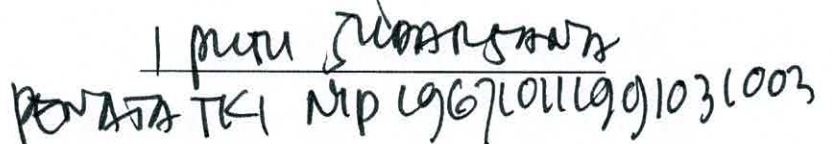 I PUTU SUDARSANA
PENATA TK I NIP 196710111991031003